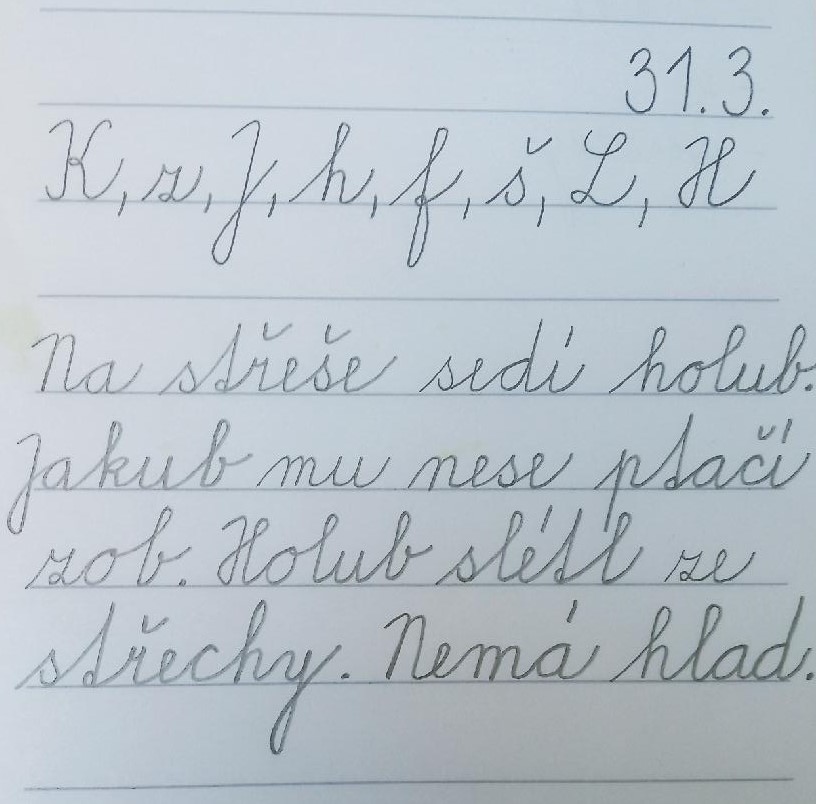 31.3.
K, z, J, h, f, š, L, H
Na střeše sedí holub.
Jakub mu nese ptačí
zob. Holub slétl ze
střechy. Nemá hlad.